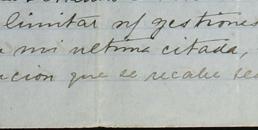 limitar n/ gestiones
mi ultima citada,
acion que se recabe sea